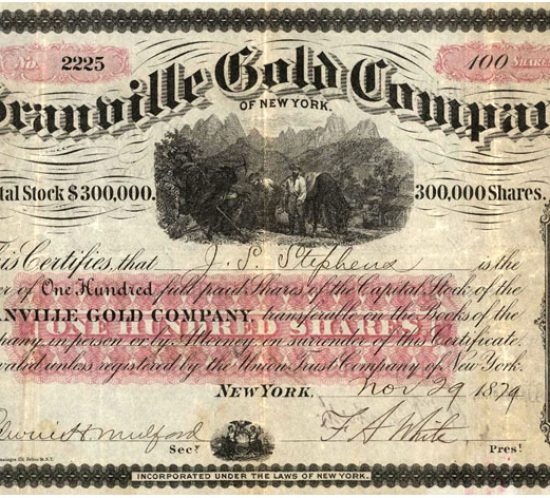 No. 2225
100 SHARES
Granville Gold Company
OF NEW YORK.
tal Stock $300,000.
300,000 Shares.
his Certifies, that J. S. Stephens is the
er of One Hundred full paid Shares of the Capital Stock of the
ANVILLE GOLD COMPANY, transferable on the Books of the
ONE HUNDRED SHARES
pany in person or by Attorney on surrender of this Certificate.
valid unless registered by the Union Trust Company of New York.
NEW YORK. Nov 29 1879
Mulford
Secy
F A White
Prest
INCORPORATED UNDER THE LAWS OF NEW YORK.